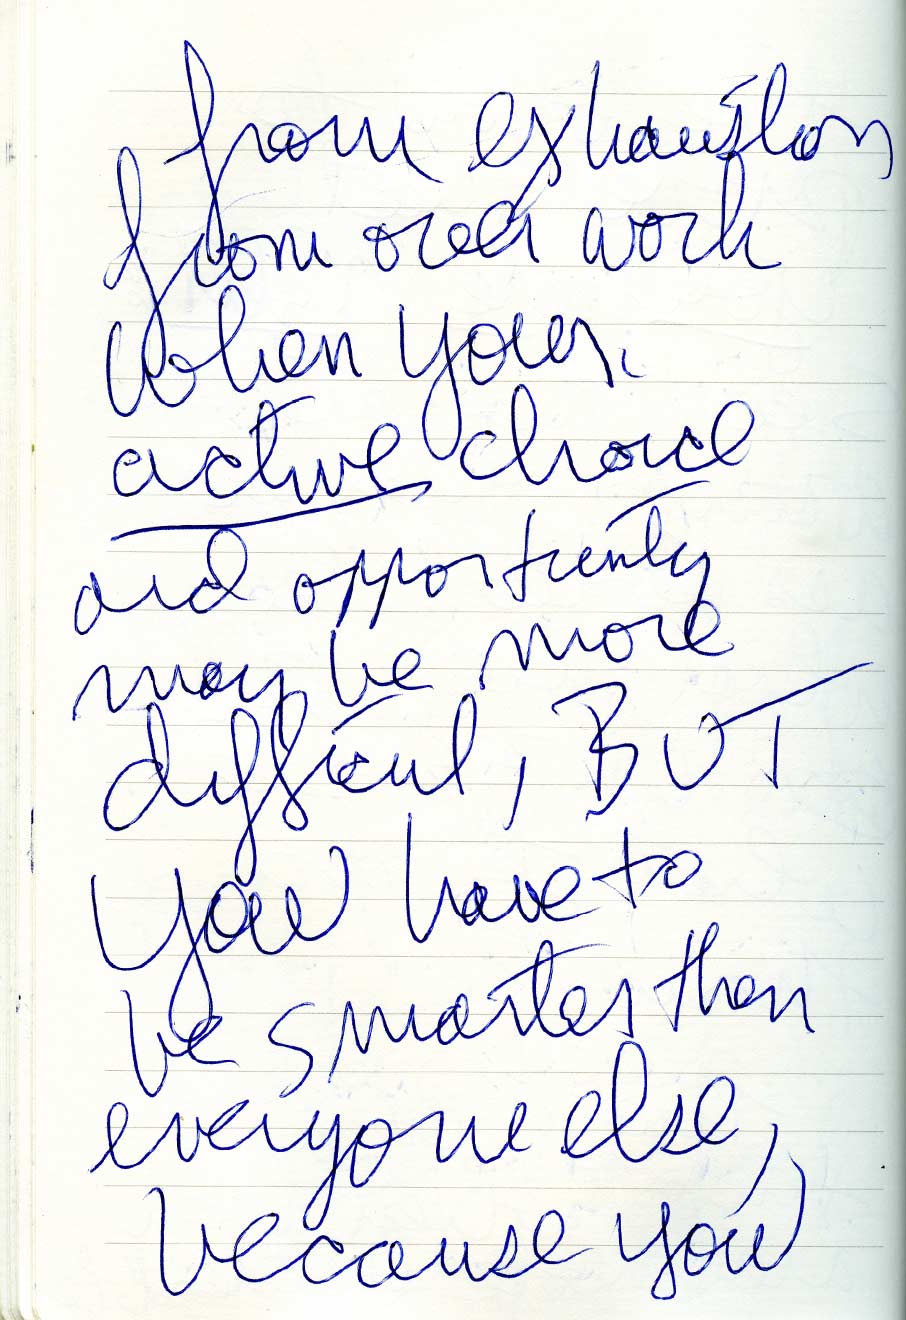 from exhaustion
from over work
when your
active choice
and opportunity
may be more
difficult, BUT
you have to
be smarter than
everyone else,
because you